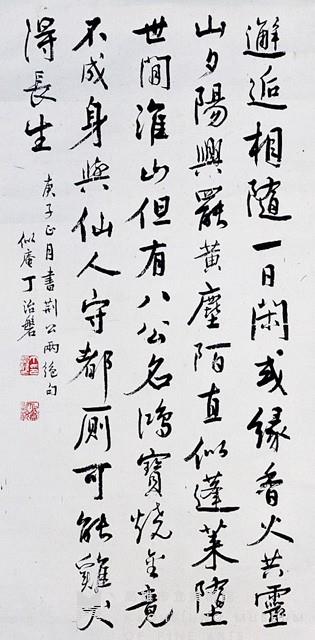 邂逅相隨一日閑或緣香火共靈
山夕陽興罷黃塵陌直似蓬萊墮
世間淮山但有八公名鴻寶燒金竟
不成身與仙人守都厠可能雞犬
得長生
庚子正月書荊公兩絕句
似庵丁治磐
MUSEUM
OF FINE